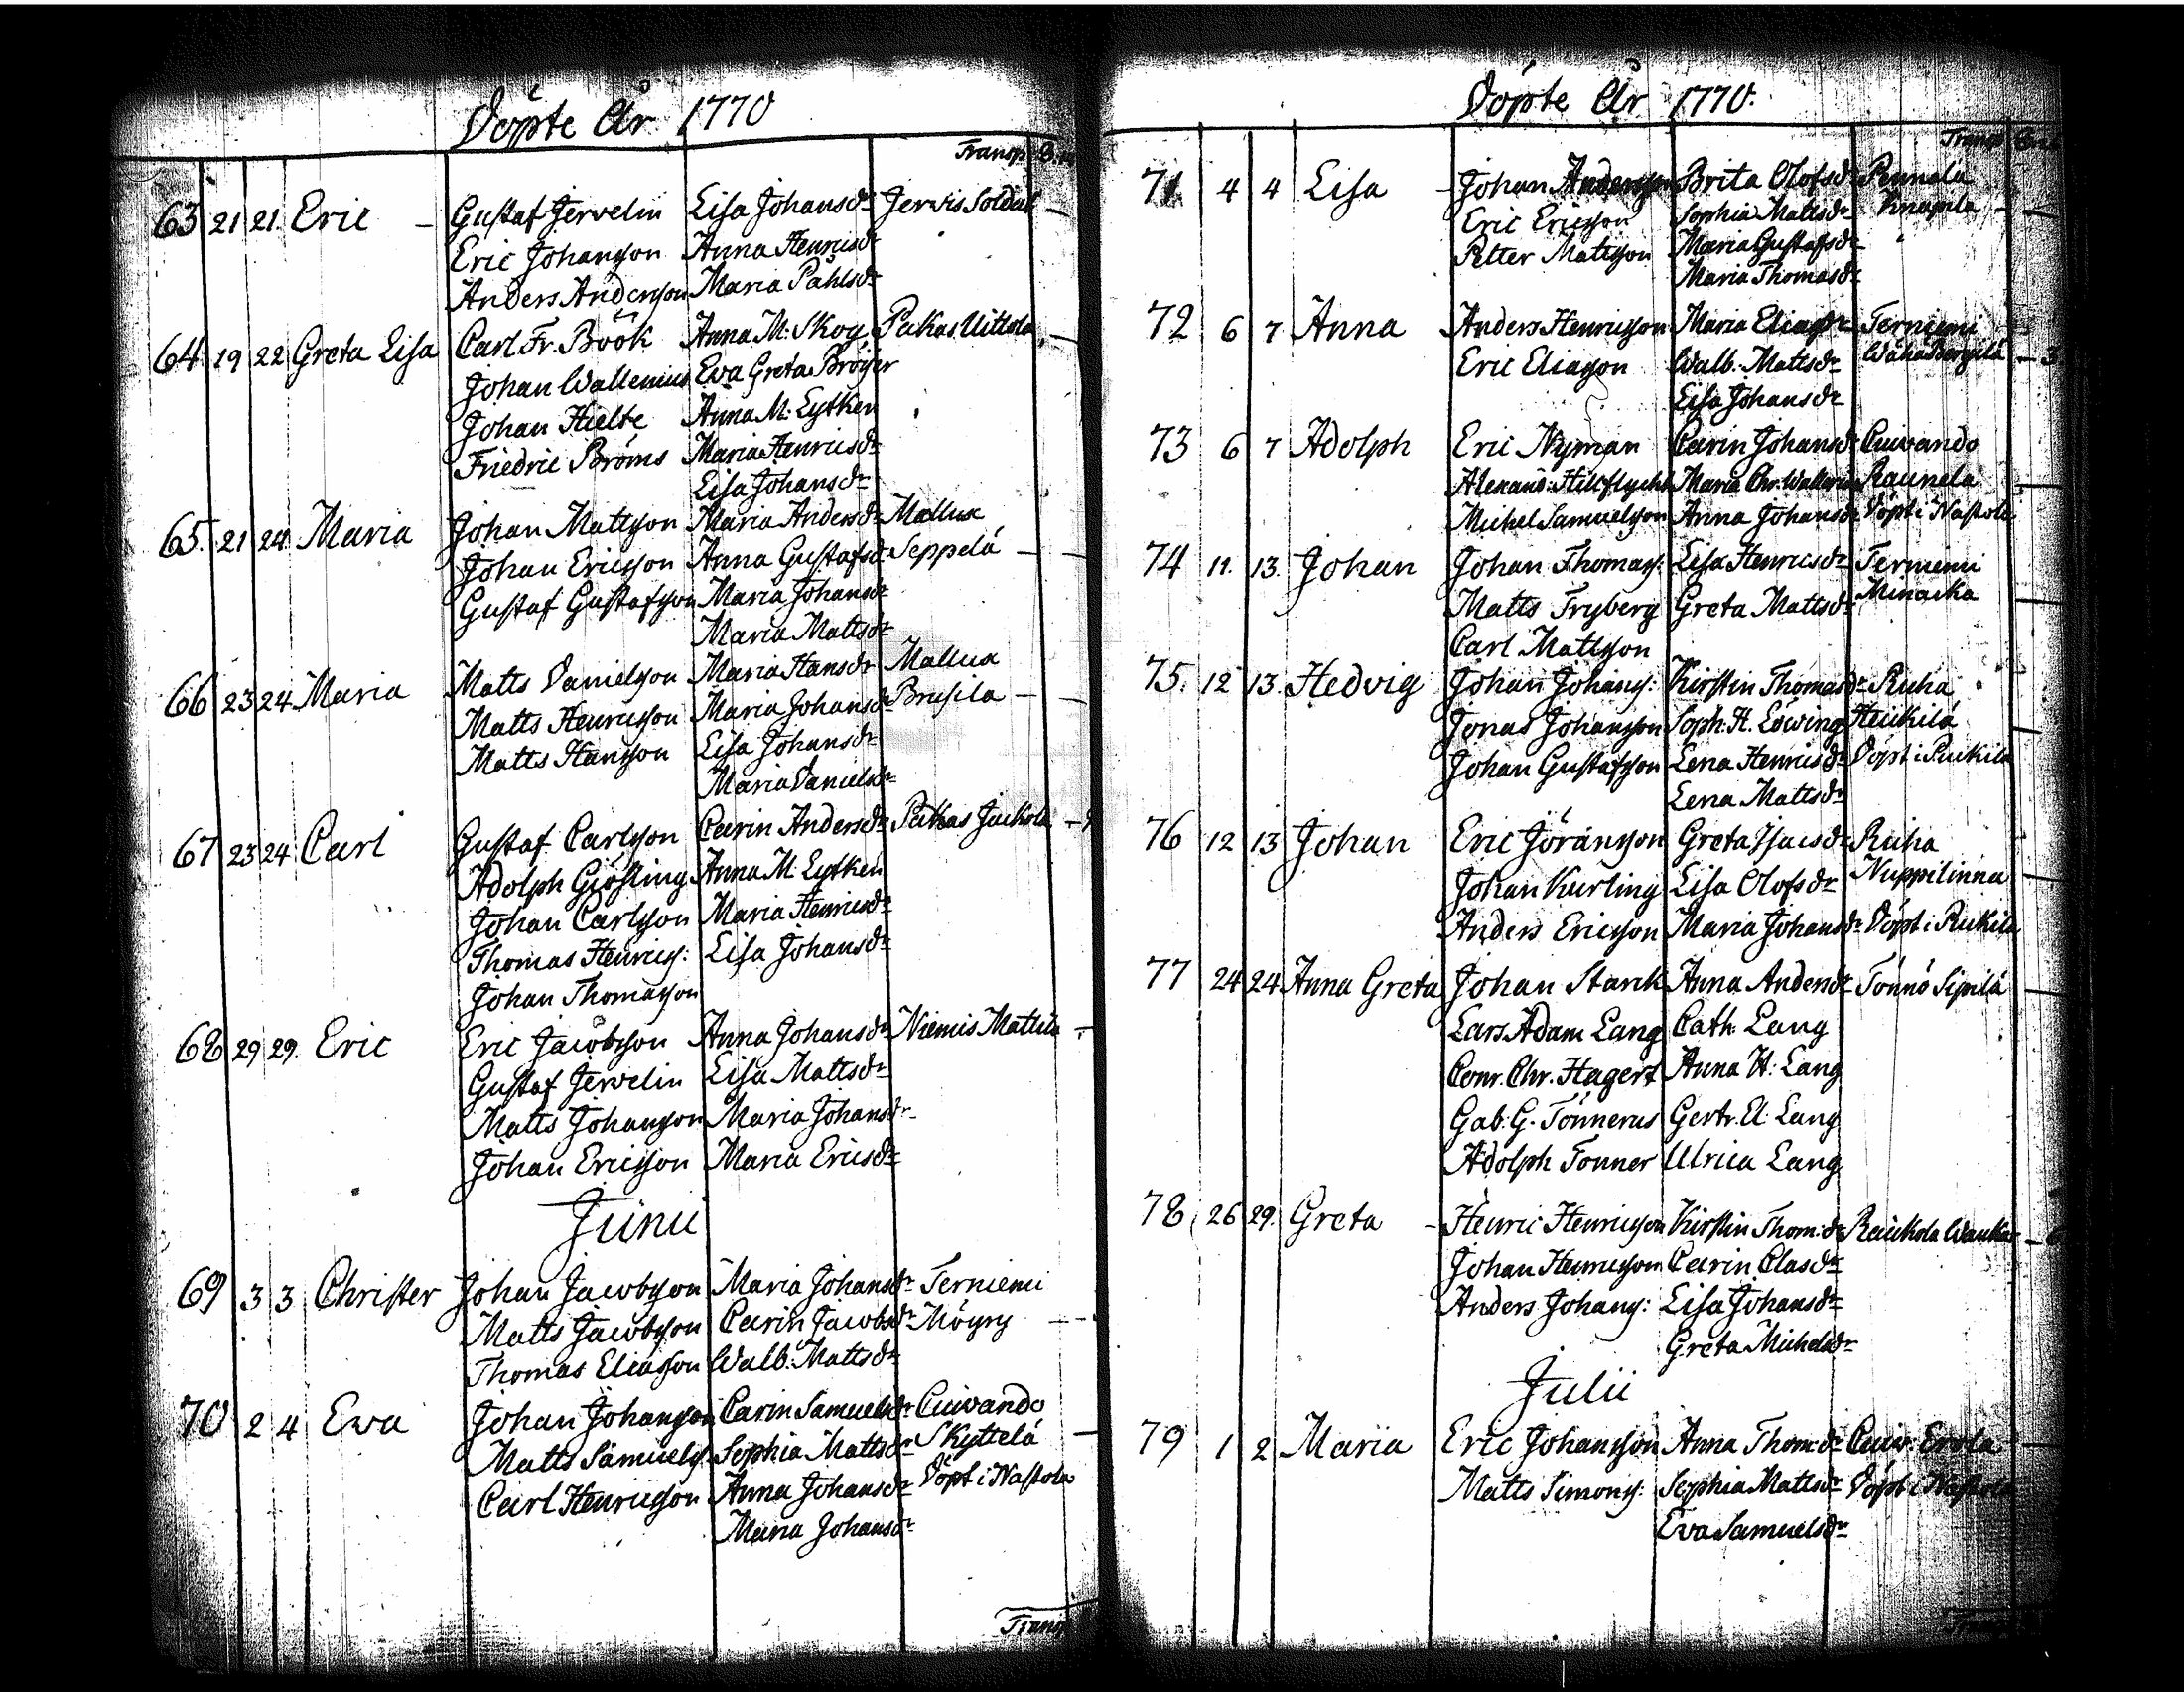 Döpte År 1770
Transp
63 21 21 Eric – Gustaf Jervelin Lisa Johansdr Jervis Soldat –
Eric Johansson Anna Henricsdr
Anders Andersson Maria Påhlsdr
64 19 22 Greta Lisa Carl Fr. Böök Anna M: Skog Pakas Uittola
Johan Wallenius Eva Greta Bröijer
Johan Hielte Anna M: Lytken
Friedric Broms Maria Henricsdr
Lisa Johansdr
65. 21 24 Maria Johan Mattsson Maria Andersdr Mallux
Johan Ericsson Anna Gustafsdr Seppelä –
Gustaf Gustafsson Maria Johansdr
Maria Mattsdr
66 23 24 Maria Matts Danielsson Maria Hansdr Mallux
Matts Henricsson Maria Johansdr Brusila –
Matts Hansson Lisa Johansdr
Maria Danielsdr
67 23 24 Carl Gustaf Carlsson Carin Andersdr Pakas Jackola –
Adolph Giösling Anna M. Lytken
Johan Carlsson Maria Henricsdr
Thomas Henrics: Lisa Johansdr
Johan Thomasson
68 29 29. Eric Eric Jacobsson Anna Johansdr Niemis Mattila –
Gustaf Jervelin Lisa Mattsdr
Matts Johansson Maria Johansdr
Johan Ericsson Maria Ericsdr
Junii
69 3 3 Christer Johan Jacobsson Maria Johansdr Terniemi
Matts Jacobsson Carin Jacobsdr Möyry –
Thomas Eliasson Walb: Mattsdr
70 2 4 Ewa Johan Johansson Carin Samuelsdr Cuivando
Matts Samuels. Sophia Mattsdr Skyttelä –
Carl Henricsson Anna Johansdr Döpt i Nastola
Maria Johansdr
Transp
Döpte År 1770.
Transp
71 4 4 Lisa – Johan Andersson Brita Olofsdr Pennala
Eric Ericsson Sophia Mattsdr Knapila –
Petter Mattsson Maria Gustafsdr
Maria Thomasdr
72 6 7 Anna Anders Henricsson Maria Eliasdr Terniemi
Eric Eliasson Walb: Mattsdr WähäBergilä –
Lisa Johansdr
73 6 7 Adolph Eric Nyman Carin Johansdr Cuivando
Alexand: Maria Chr. Raunela
Michel Samuelsson Anna Johansdr Döpt i Nastola
74 11. 13. Johan Johan Thomass: Lisa Henricsdr Terniemi
Matts Fryberg Greta Mattsdr Minacka
Carl Mattsson
75. 12 13 Hedvig Johan Johanss: Kirstin Thomasdr Ruha
Jonas Johansson Soph: H. Löwing Heickilä
Johan Gustafsson Lena Henricsdr Döpt i Ruckila
Lena Mattsdr
76 12 13 Johan Eric Jöransson Greta Isacsdr Ruha
Johan Kurling Lisa Olofsdr Nuppilinna
Anders Ericsson Maria Johansdr Döpt i Ruckila
77 24 24 Anna Greta Johan Stark Anna Andersdr Tönnö Sipilä
Lars Adam Lang Cath: Lang
Conr. Chr. Hagert Anna H: Lang
Gab. G. Tönnerus Gertr. El: Lang
Adolph Tonner Ulrica Lang
78 26 29. Greta – Henric Henricsson Kirstin Thom:dr Raickola
Johan Henricsson Carin Clasdr
Anders Johans: Lisa Johansdr
Greta Michelsdr
Julii
79 1 2 Maria Eric Johansson Anna Thom:dr Cuiv: Erola
Matts Simons: Sophia Mattsdr Döpt i Nastola
Eva Samuelsdr